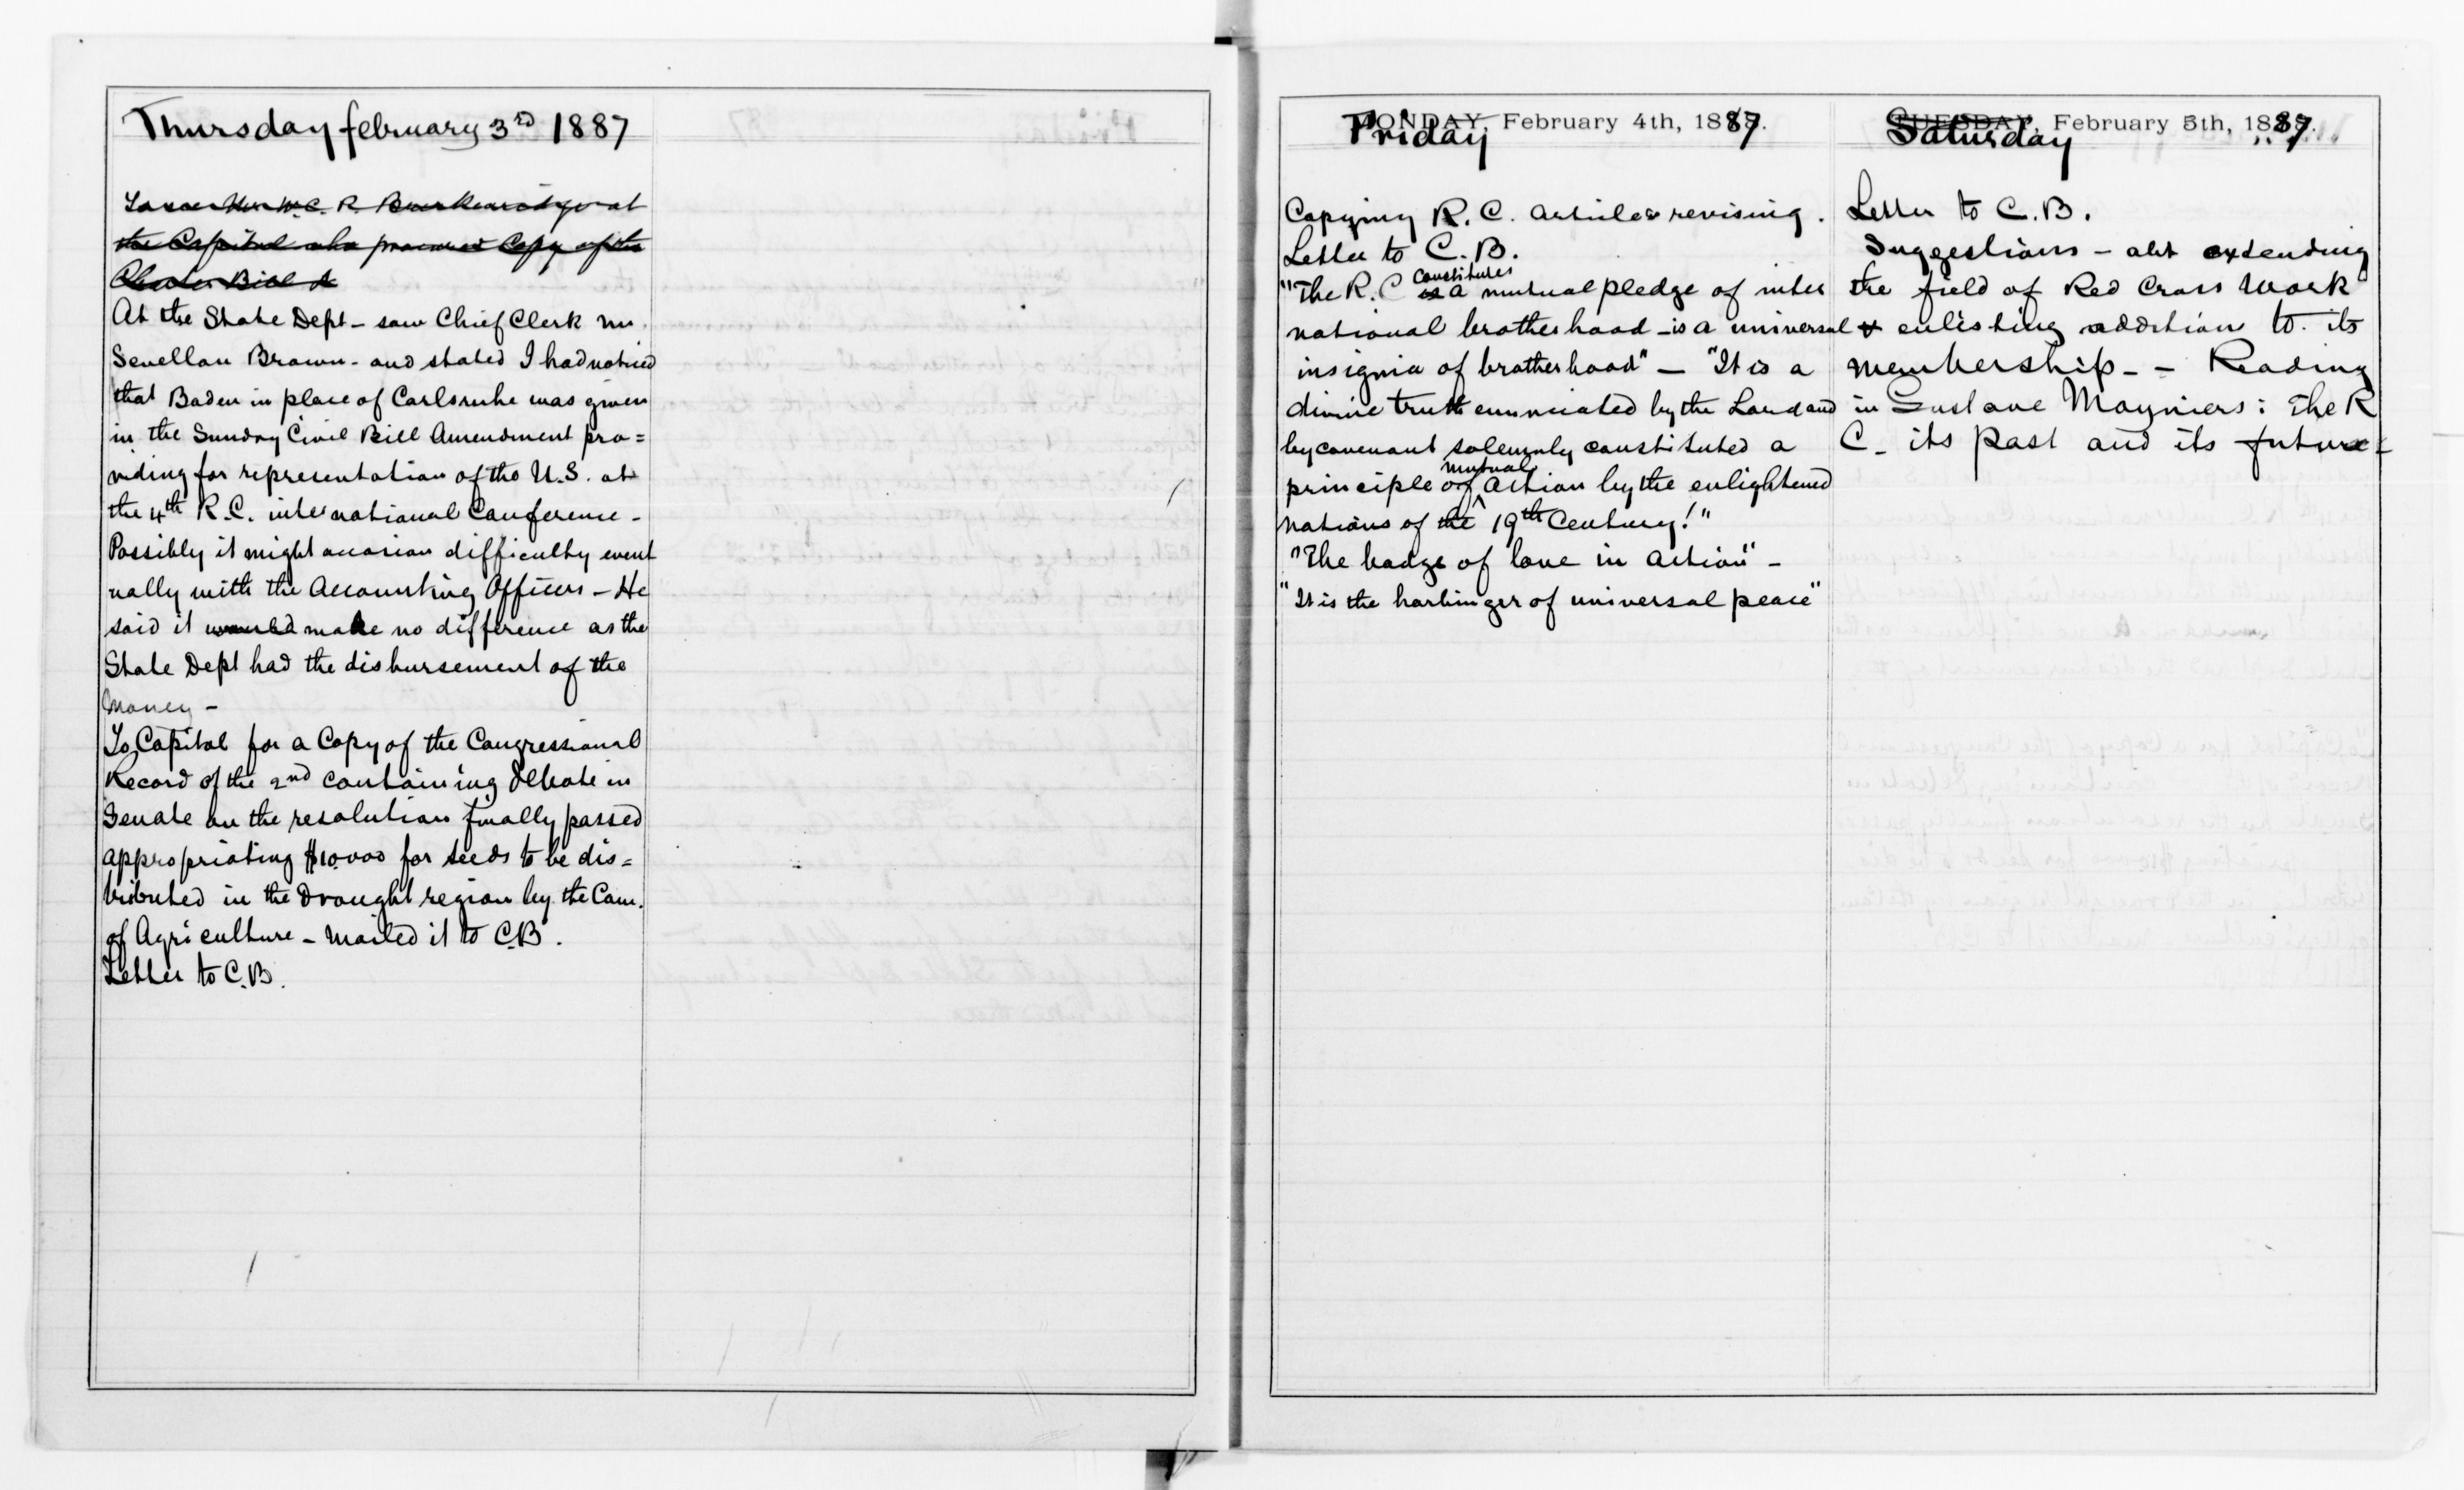 Thursday february 3rd 1887
To see Hon W.C.P. Breckenridge at
the Capitol who procured Copy of the
Bill
At the State Dept – saw Chief Clerk Mr.
Sevellon Brown – and stated I had noticed
that Baden in place of Carlsruhe was given
in the Sunday Civil Bill Amendment pro=
viding for representation of the U.S. at
the 4th R.C. international Conference –
Possibly it might occasion difficulty event
ually with the Accounting Officers – He
said it would make no difference as the
State Dept had the disbursement of the
money –
To Capitol for a Copy of the Congressional
Record of the 2nd containing debate in
Senate on the resolution finally passed
appropriating $10.000 for seeds to be dis=
tributed in the Drought region by the Com.
of Agriculture – mailed it to C.B.
Letter to C.B.
MONDAY, February 4th, 1887.
Friday
Copying R.C. article & revising.
Letter to C.B.
constitutes
"The R.C is a mutual pledge of inter
national brotherhood – is a universal
insignia of brotherhood" – "It is a
divine truth enunciated by the Lord and
by covenant solemnly constituted a
mutual
principle of action by the enlightened
nations of the 19th Century!"
"The badge of love in action" –
"It is the harbinger of universal peace"
TUESDAY, February 5th, 1887.
Saturday
Letter to C.B.
Suggestions – abt extending
the field of Red Cross Work
& enlisting addition to its
membership – – Reading
in Gustave Moyniers: The R
C – its past and its future =